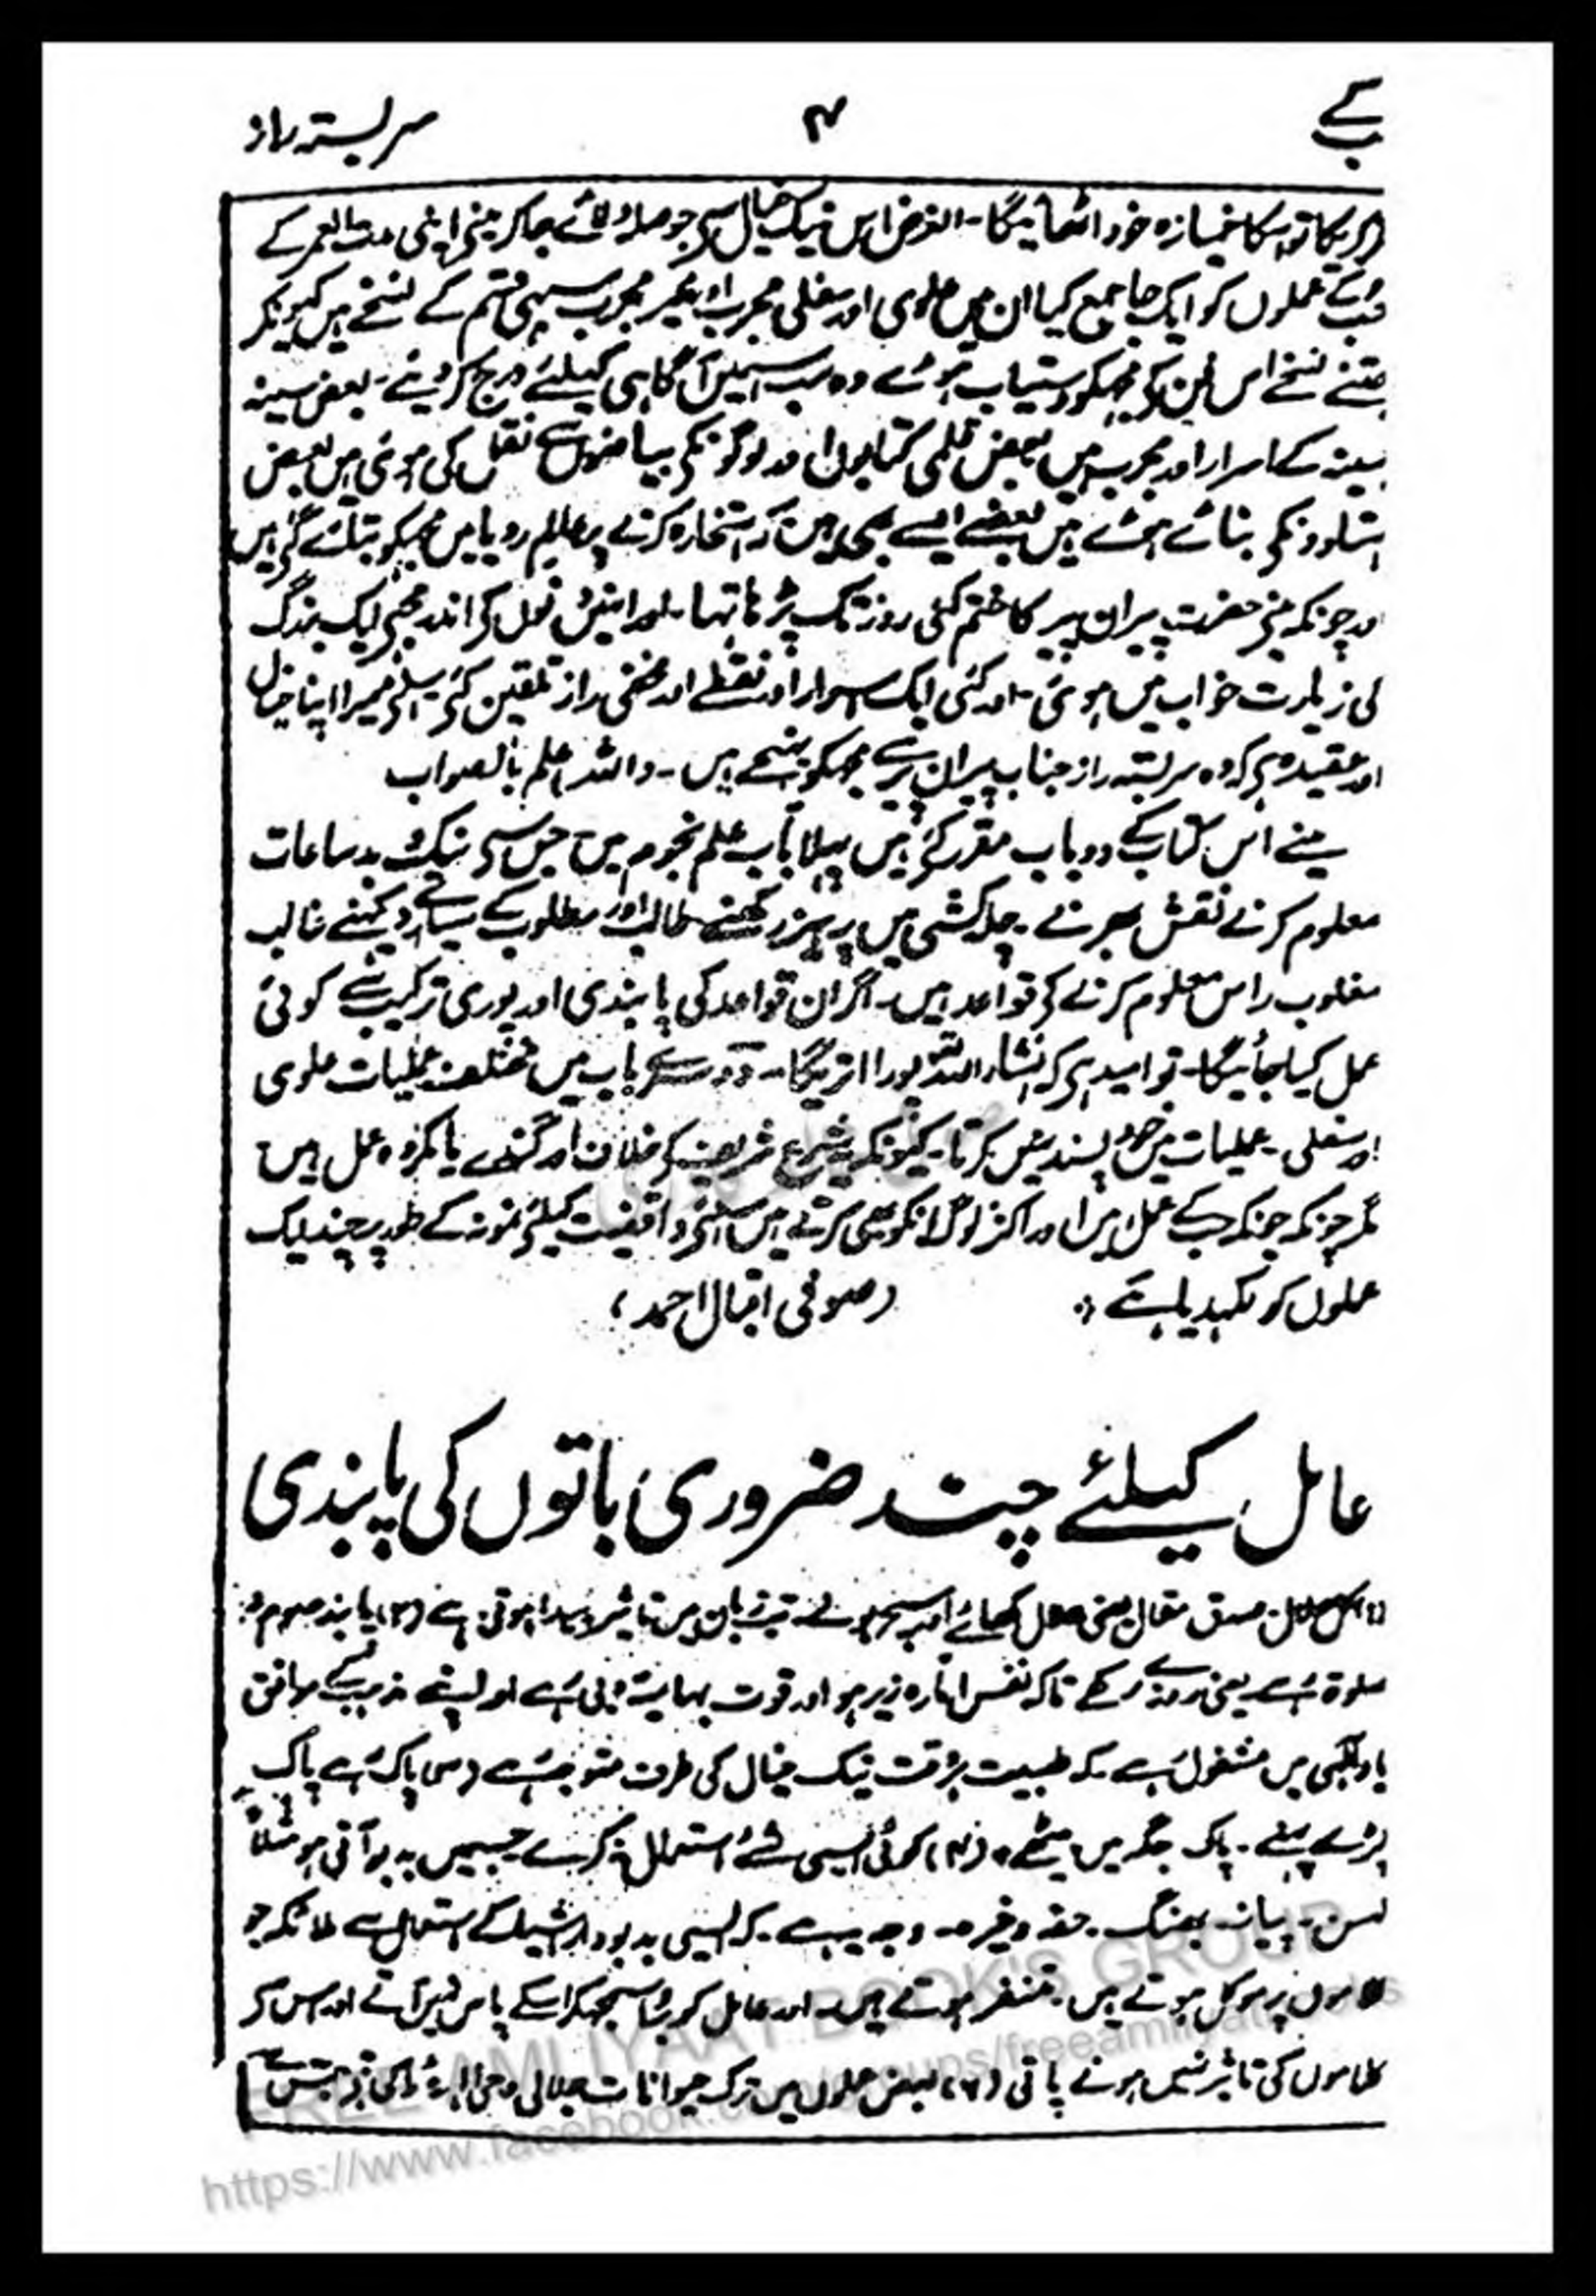 سچے ۴ سربستہ راز
کریگا تو اسکا خمیازہ خود اٹھائیگا۔ الغرض اس نیک خیال سے حوصلہ مینے اپنی مدت العمر کے
عملوں کو ایک جا جمع کیا ان میں علوی اور سفلی مجرب اور غیر مجرب سبھی قسم کے نسخے ہیں کیونکر
جتنے نسخے اس فن کے مجھکو دستیاب ہوئے وہ سب اسمیں آگاہی کیلئے درج کر دیئے۔ بعض سینہ
بسینہ کے اسرار اور مجرب ہیں بعض قلمی کتابوں اور لوگونکی بیاضوں سے نقل کی ہوئی ہیں بعض
استادونکے بتائے ہوئے ہیں بعضے ایسے بھی ہیں کہ استخارہ کرنے پر عالم رویا میں مجھکو بتلائے گئے ہیں
اور چونکہ مینے حضرت پیران پیر کا ختم کئی روز تک پڑھا تھا۔ اور انہیں دنوں کے اندر مجھے ایک بزرگ
کی زیارت خواب میں ہوئی۔ اور کئی ایک اسرار اور نقطے اور مخفی راز تلقین کئے اسلئے میرا اپنا خیال
اور عقیدہ ہے کہ وہ سربستہ راز جناب پیران پیر سے مجھکو پہنچے ہیں۔ واللہ اعلم بالصواب
مینے اس کتاب کے دو باب مقرر کئے ہیں پہلا باب علم نجوم میں جس سے نیک و بد ساعات
معلوم کرنے نقش بھرنے۔ چلہ کشی میں پرہیز رکھنے طالب اور مطلوب کے ستارے دیکھنے غالب
مغلوب راس معلوم کرنے کے قواعد ہیں۔ اگر ان قواعد کی پابندی اور پوری ترکیب سے کوئی
عمل کیا جائیگا۔ تو امید ہے کہ انشاء اللہ پورا اتریگا۔ دوسرے باب میں مختلف عملیات علوی
اور سفلی۔ عملیات میں خود پسند نہیں کرتا۔ کیونکہ شرع شریف کے خلاف اور گندے یا مکروہ عمل ہیں
مگر چونکہ چونکہ عمل ہیں اور اکثر لوگ انکو بھی کرتے ہیں اسلئے واقفیت کیلئے نمونہ کے طور پر چند ایک
عملوں کو لکھدیا ہے ؞ (صوفی اقبال احمد)
عامل کیلئے چند ضروری باتوں کی پابندی
(۱) اکل حلال صدق مقال یعنی حلال کھائے اور سچ بولے تب زبان میں تاثیر پیدا ہوتی ہے (۲) پابند صوم و
صلوۃ رہے یعنی روزے رکھے تاکہ نفس امارہ زیر ہو اور قوت بہیمانہ دبی رہے اور اپنے مذہب کے موافق
یاد الہی میں مشغول رہے کہ طبیعت ہر وقت نیک خیال کی طرف متوجہ رہے (۳) پاک رہے پاک
کپڑے پہنے۔ پاک جگہ میں بیٹھے۔ (۴) کوئی ایسی شئے استعمال نہ کرے جسمیں بدبو آتی ہو مثلاً
لہسن۔ پیاز۔ بھنگ۔ حقہ وغیرہ۔ وجہ یہ ہے۔ کہ ایسی بدبودار اشیاء کے استعمال سے ملائکہ جو
کلاموں پر موکل ہوتے ہیں۔ متنفر ہوتے ہیں۔ اور عامل کو برا سمجھکر اسکے پاس نہیں آتے اور اس کر
کلاموں کی تاثیر نہیں ہونے پاتی (۷) بعض عملوں میں ترک حیوانات جلالی و جمالی
FREE AMLIYAAT BOOK'S GROUP
https://www.facebook.com/groups/freeamliyatbooks